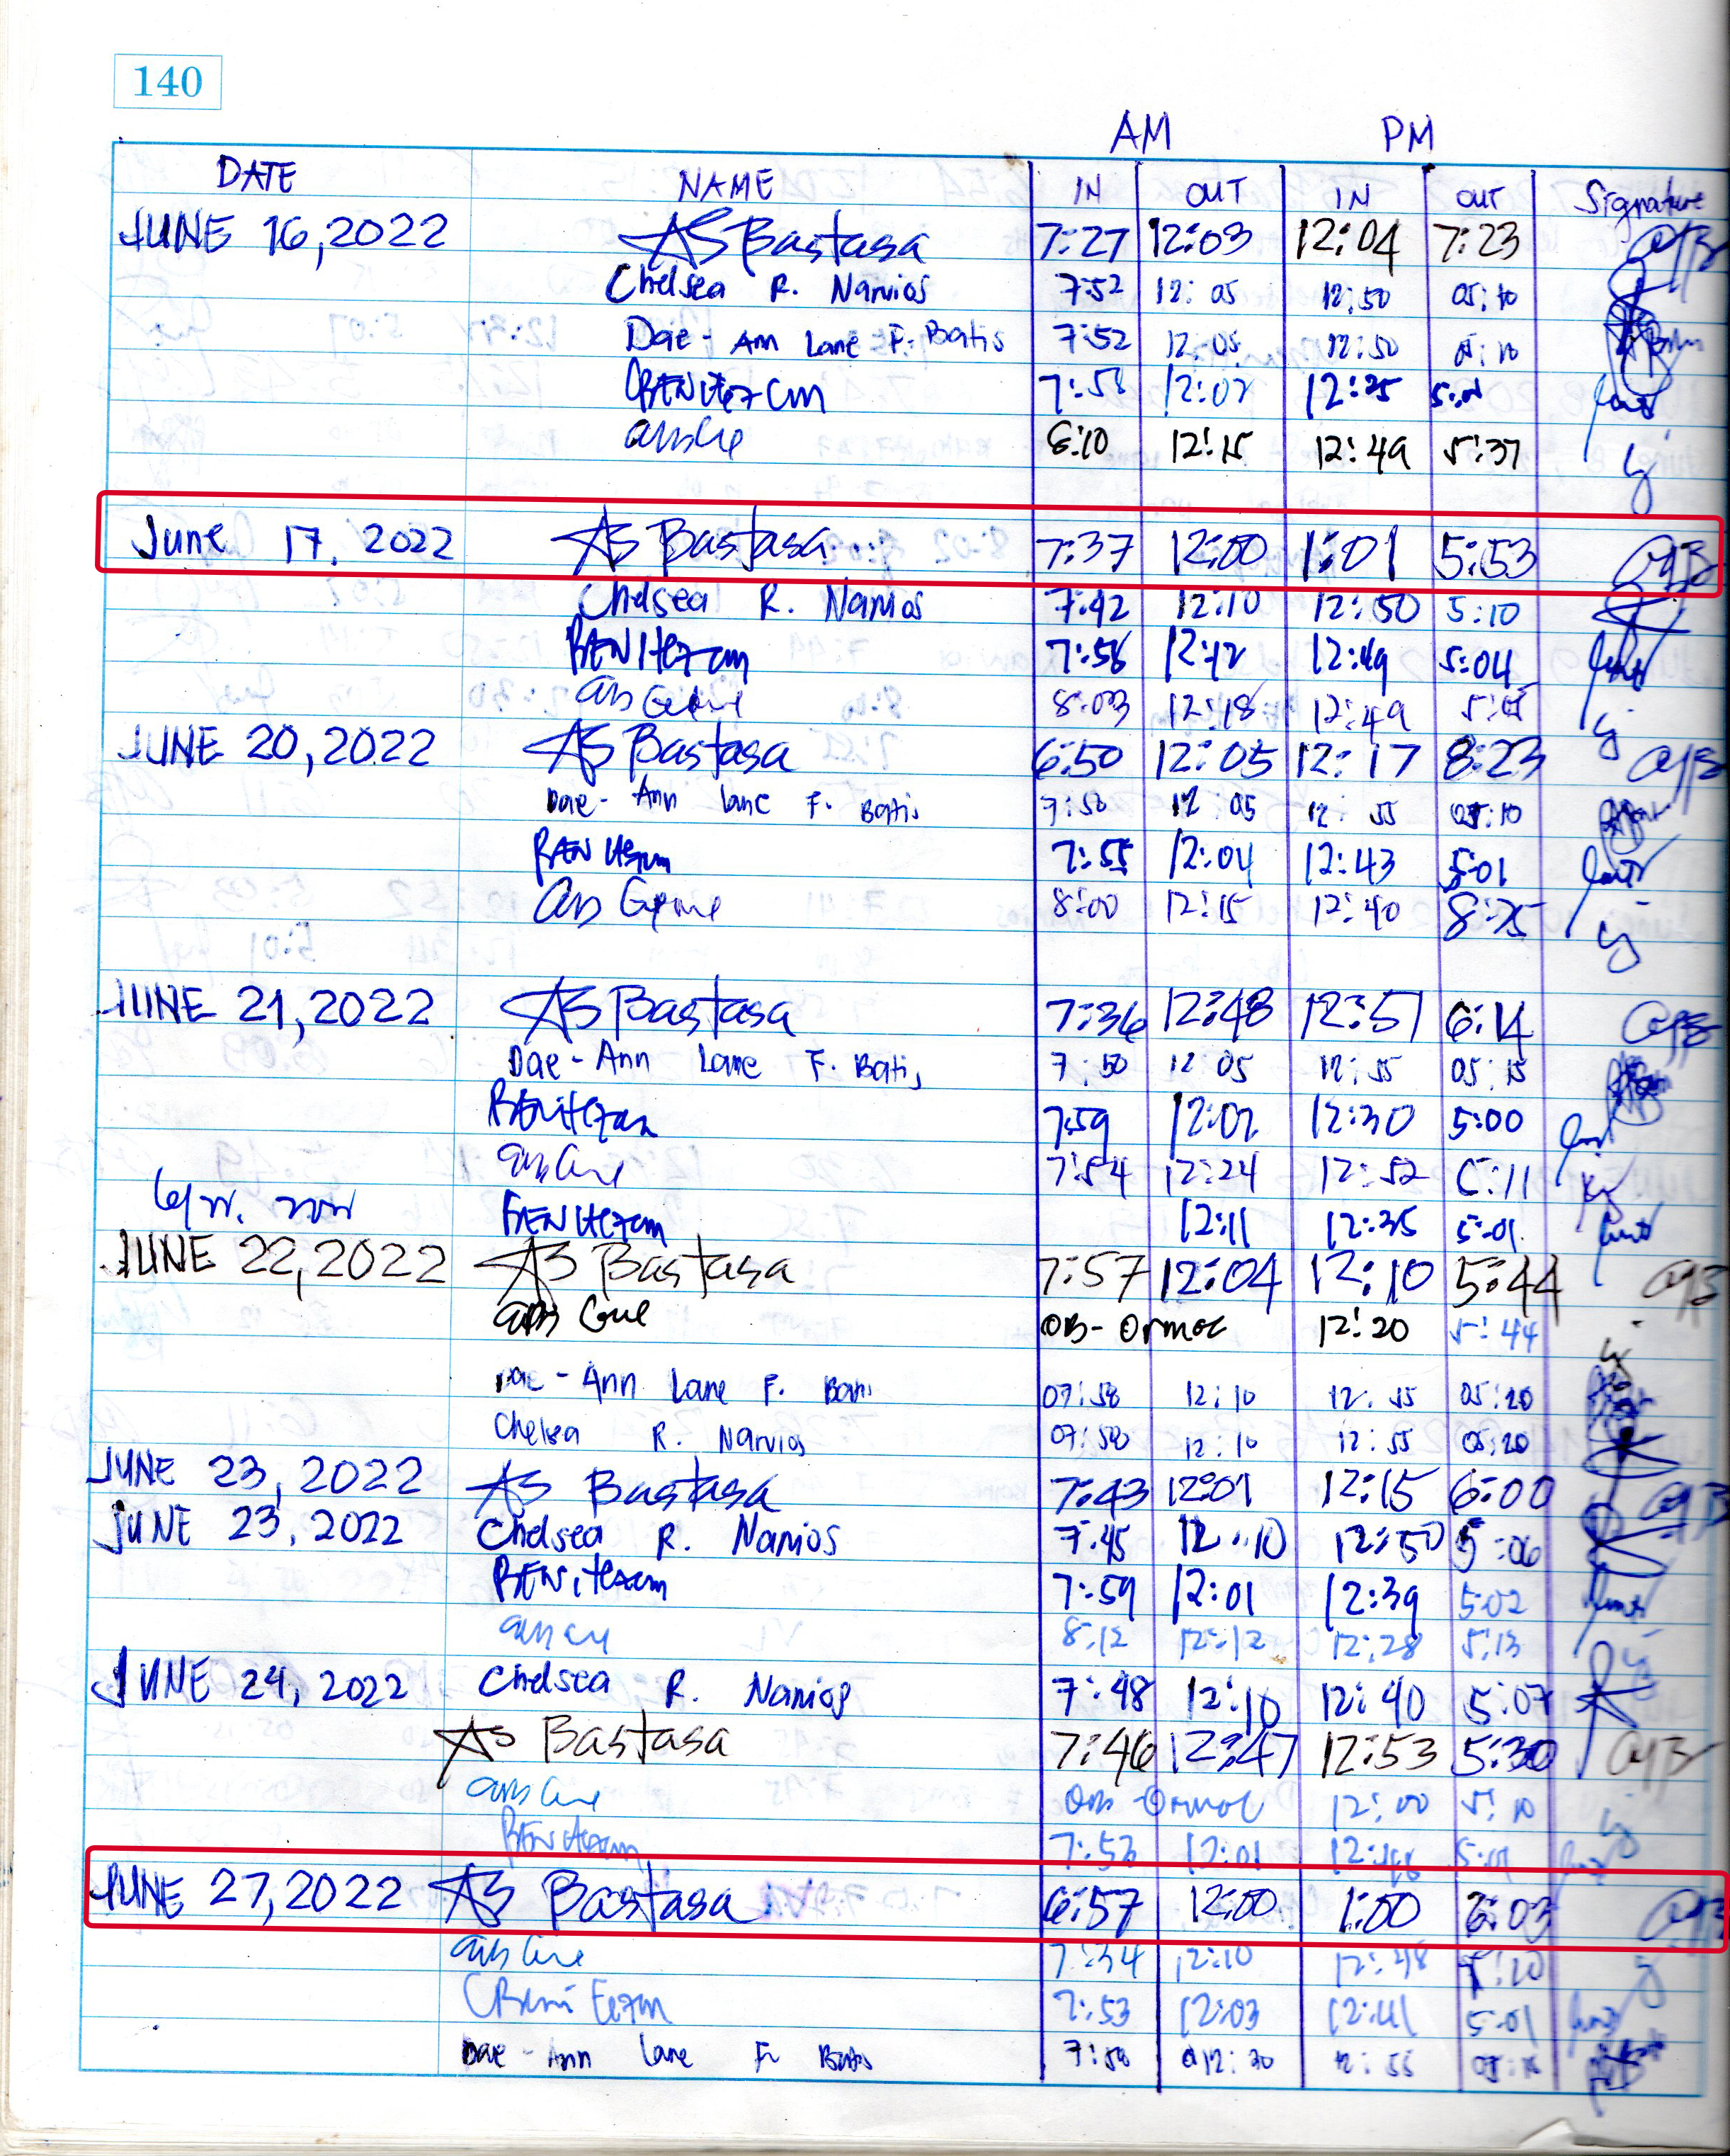 140
AM PM
DATE NAME IN OUT IN OUT Signature
JUNE 16, 2022 AS Bastasa 7:27 12:03 12:04 7:23
Chelsea R. Narvios 7:52 12:05 12:50 05:10
Dae-Ann Lane F. Batis 7:52 12:05 12:50 05:10
CBENitez cm 7:58 12:02 12:25 5:01
8:10 12:15 12:49 5:37
June 17, 2022 AS Bastasa 7:37 12:00 1:01 5:53
Chelsea R. Narvios 7:42 12:10 12:50 5:10
BENitezcm 7:58 12:12 12:49 5:04
8:03 12:18 12:49
JUNE 20, 2022 AS Bastasa 6:50 12:05 12:17 8:23
Dae-Ann Lane F. Batis 7:50 12:05 12:55 05:10
7:55 12:04 12:43 5:01
8:00 12:15 12:40 8:25
JUNE 21, 2022 AS Bastasa 7:36 12:48 12:51 6:14
Dae-Ann Lane F. Batis 7:50 12:05 12:55 05:15
BENitezcm 7:59 12:02 12:30 5:00
7:54 12:24 12:52 5:11
BENitezcm 12:11 12:35 5:01
JUNE 22, 2022 AS Bastasa 7:57 12:04 12:10 5:44
OB-Ormoc 12:20 5:44
Dae-Ann Lane F. Batis 07:58 12:10 12:55 05:20
Chelsea R. Narvios 07:58 12:10 12:55 05:20
JUNE 23, 2022 AS Bastasa 7:43 12:01 12:15 6:00
JUNE 23, 2022 Chelsea R. Narvios 7:45 12:10 12:50 5:06
BENitezcm 7:59 12:01 12:39 5:02
8:12 12:12 12:28 5:13
JUNE 24, 2022 Chelsea R. Narvios 7:48 12:10 12:40 5:07
AS Bastasa 7:46 12:47 12:53 5:30
OB-Ormoc 12:00 5:10
BENitezcm 7:53 12:01
JUNE 27, 2022 AS Bastasa 6:57 12:00 1:00 6:03
7:34 12:10 12:48
7:53 12:03 12:41 5:01
Dae-Ann Lane F. Batis 7:58 12:20 12:55